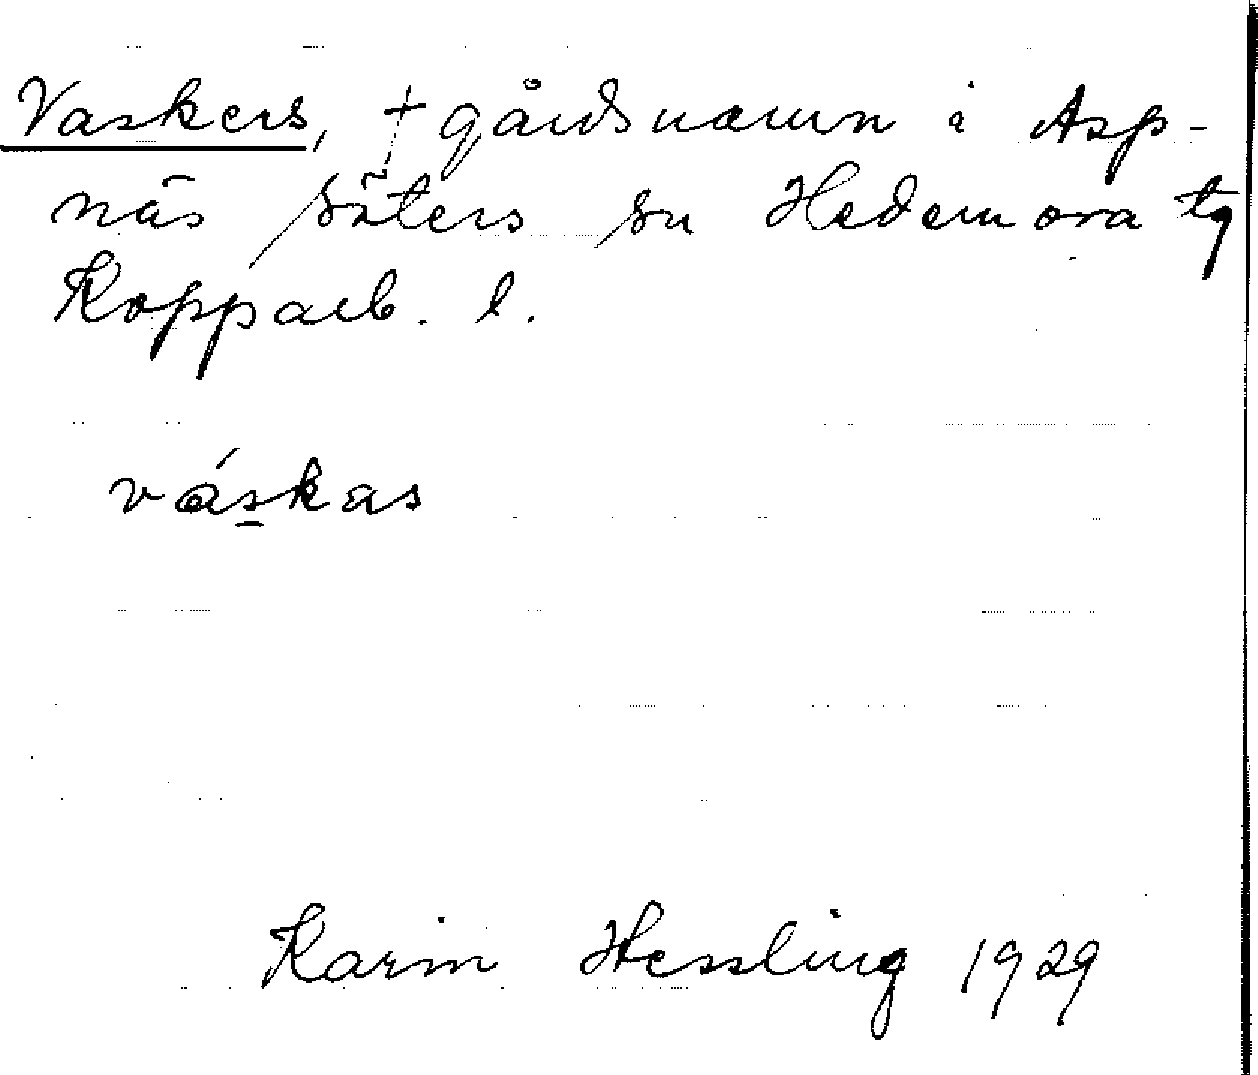 Vaskers, † gårdsnamn i Asp-
näs Säters sn Hedemora tg
Kopparb. l.
váskas
Karin Hessling 1929